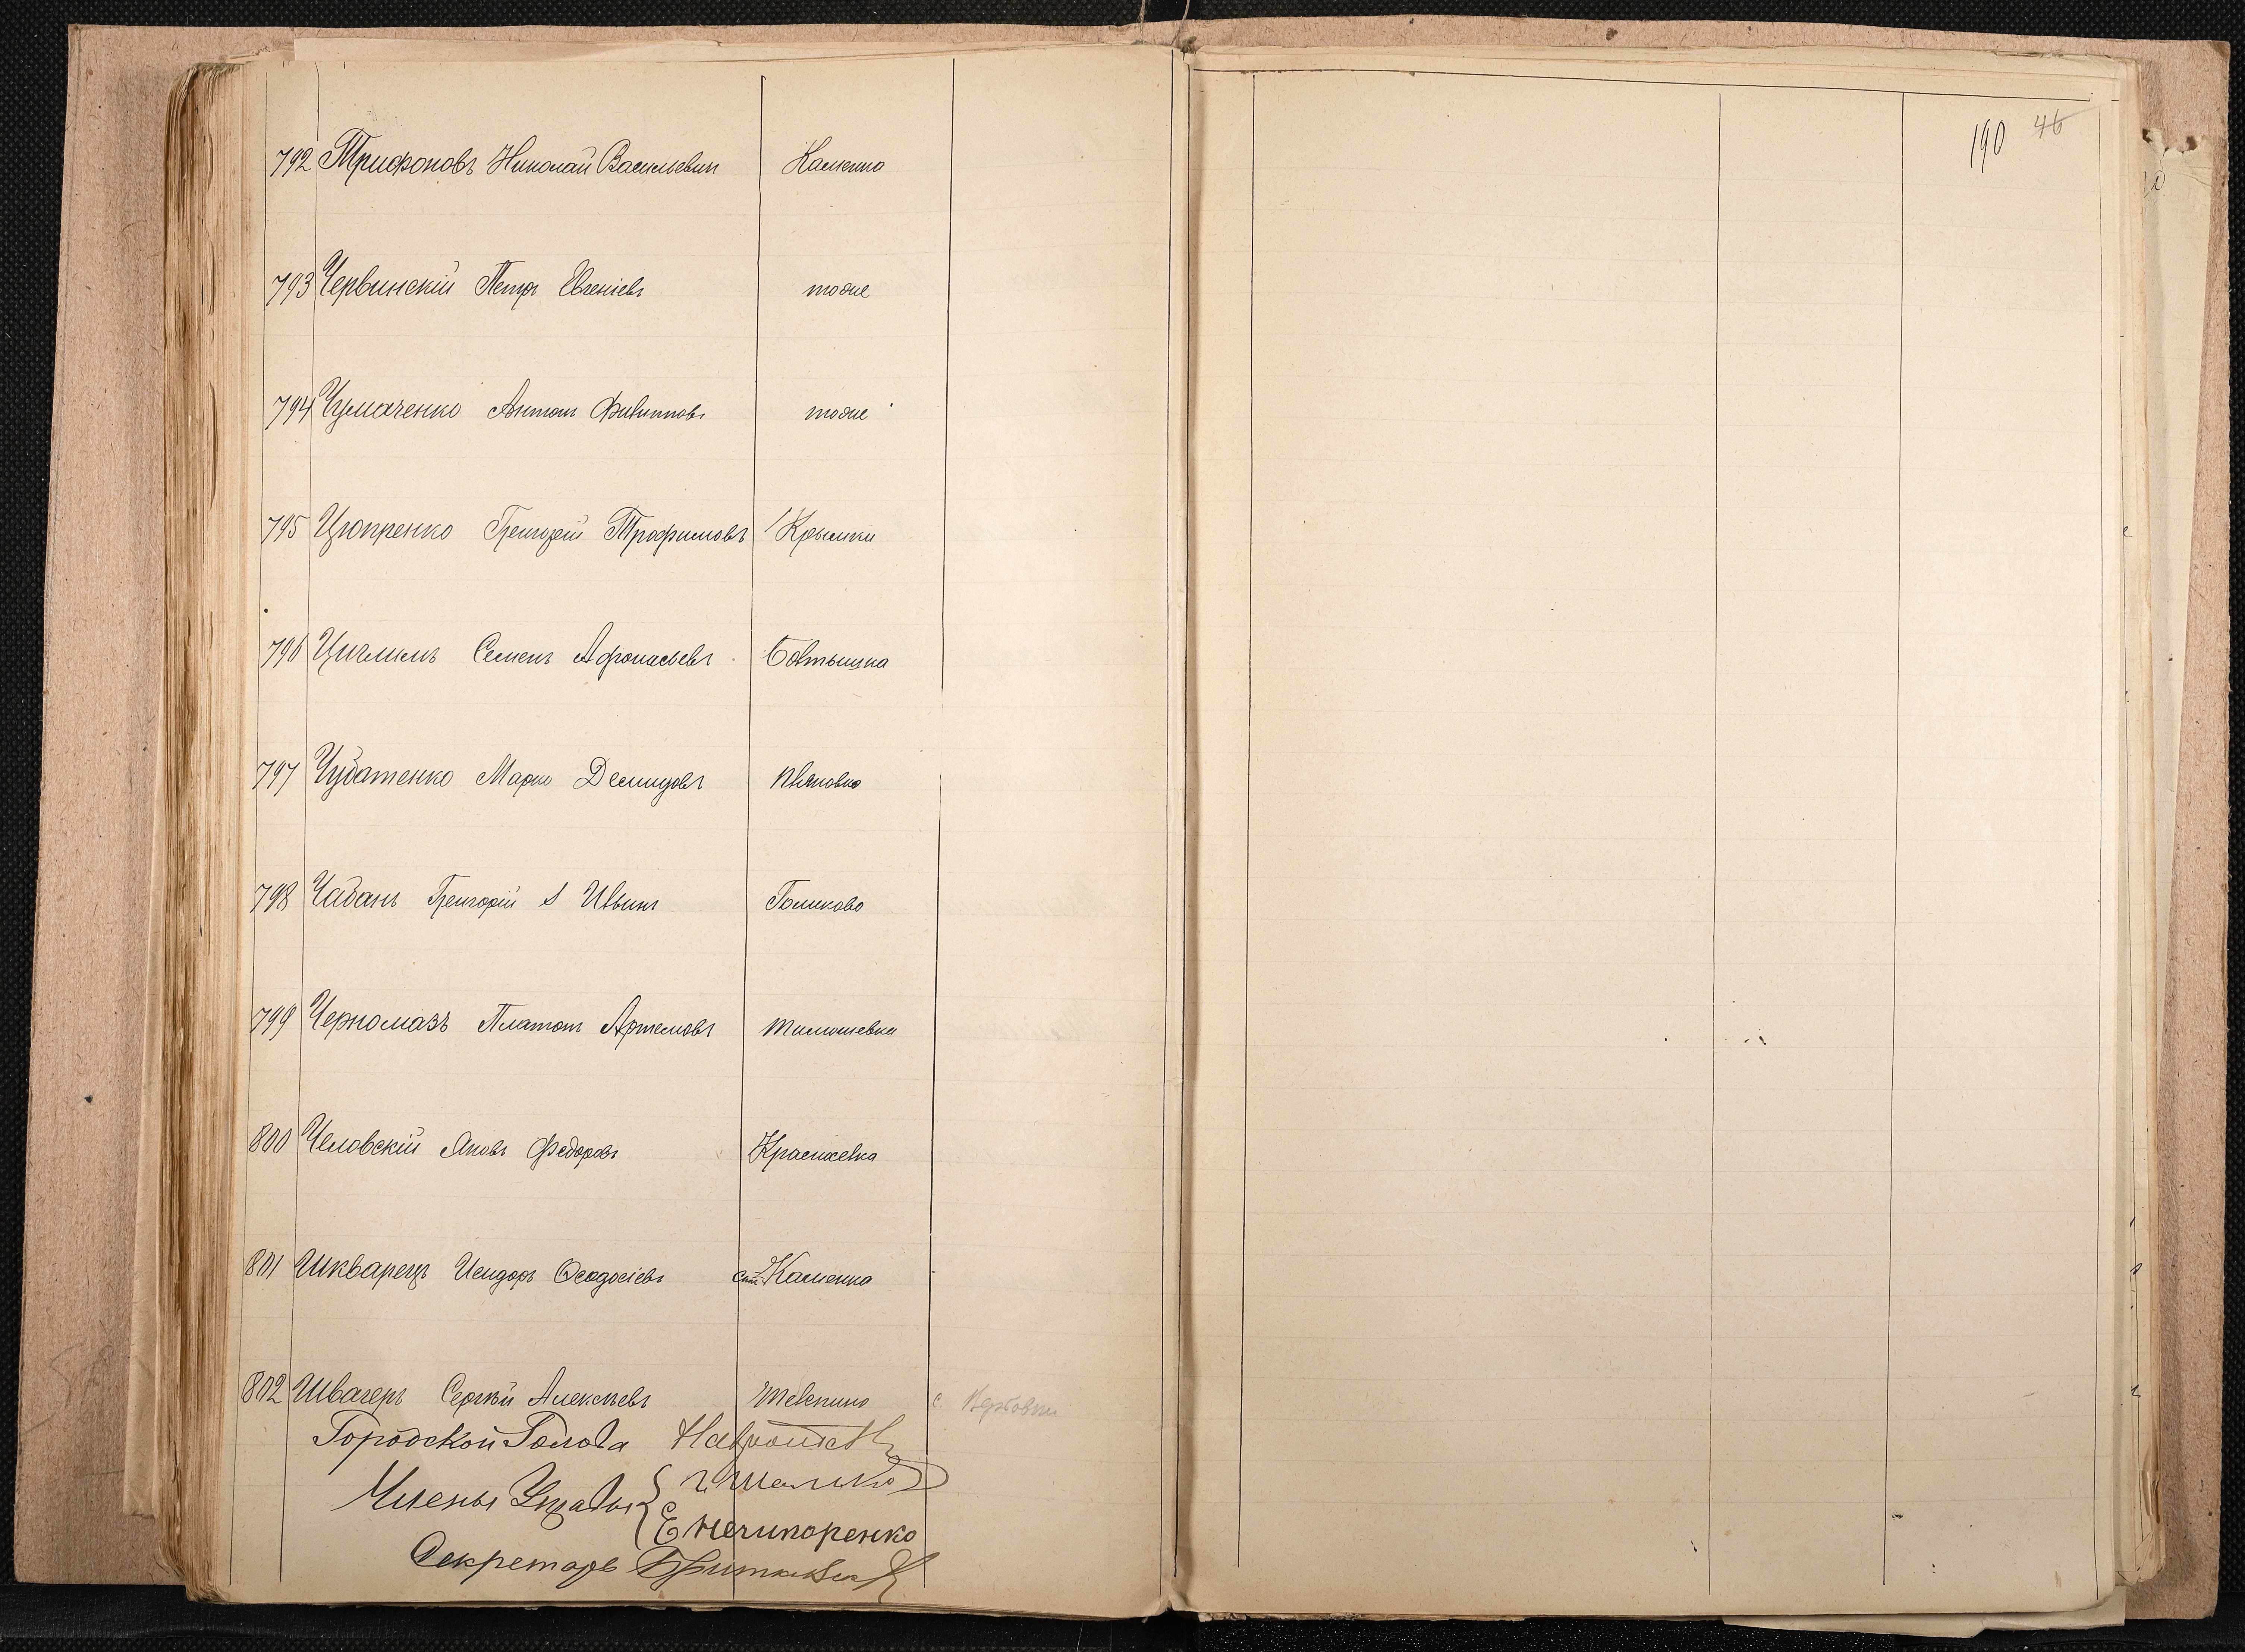 190 46
792 Трифоновъ Николай Васильевич Каменка
793 Червинскій Петръ Евгеніевъ тоже
794 Чумаченко Антонъ Филипповъ тоже
795 Цюпренко Григорій Трофимовъ Крымки
796 Семенъ Афонасьевъ Болтышка
797 Чубатенко Марко Демидовъ
798 Чабанъ Григорій Голиково
799 Черномазъ Платонъ Артемовъ Тимошевка
800 Человскій Яковъ Федоровъ
801 Шкварецъ Исидоръ Феодосіевъ ст. Каменка
802 Швагеръ Сергѣй Алексѣевъ с. Вербовки
Городской Голова
Члены Управы
Е Нечипоренко
Секретарь